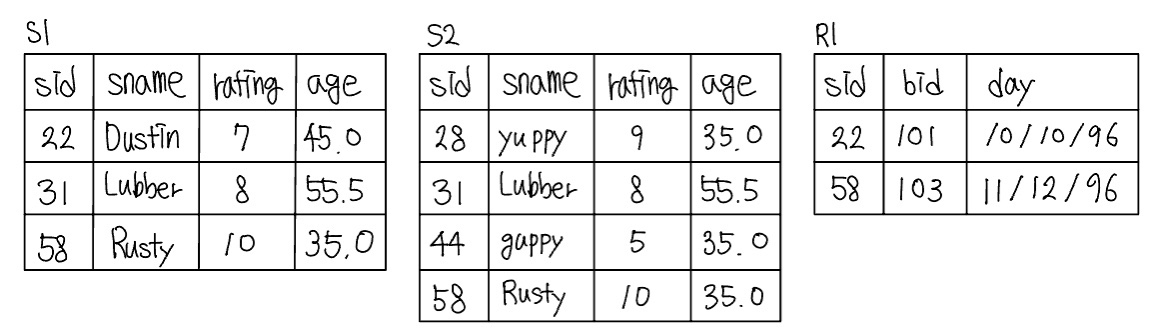 S1
sid sname rating age
22 Dustin 7 45.0
31 Lubber 8 55.5
58 Rusty 10 35.0
S2
sid sname rating age
28 yuppy 9 35.0
31 Lubber 8 55.5
44 guppy 5 35.0
58 Rusty 10 35.0
R1
sid bid day
22 101 10/10/96
58 103 11/12/96